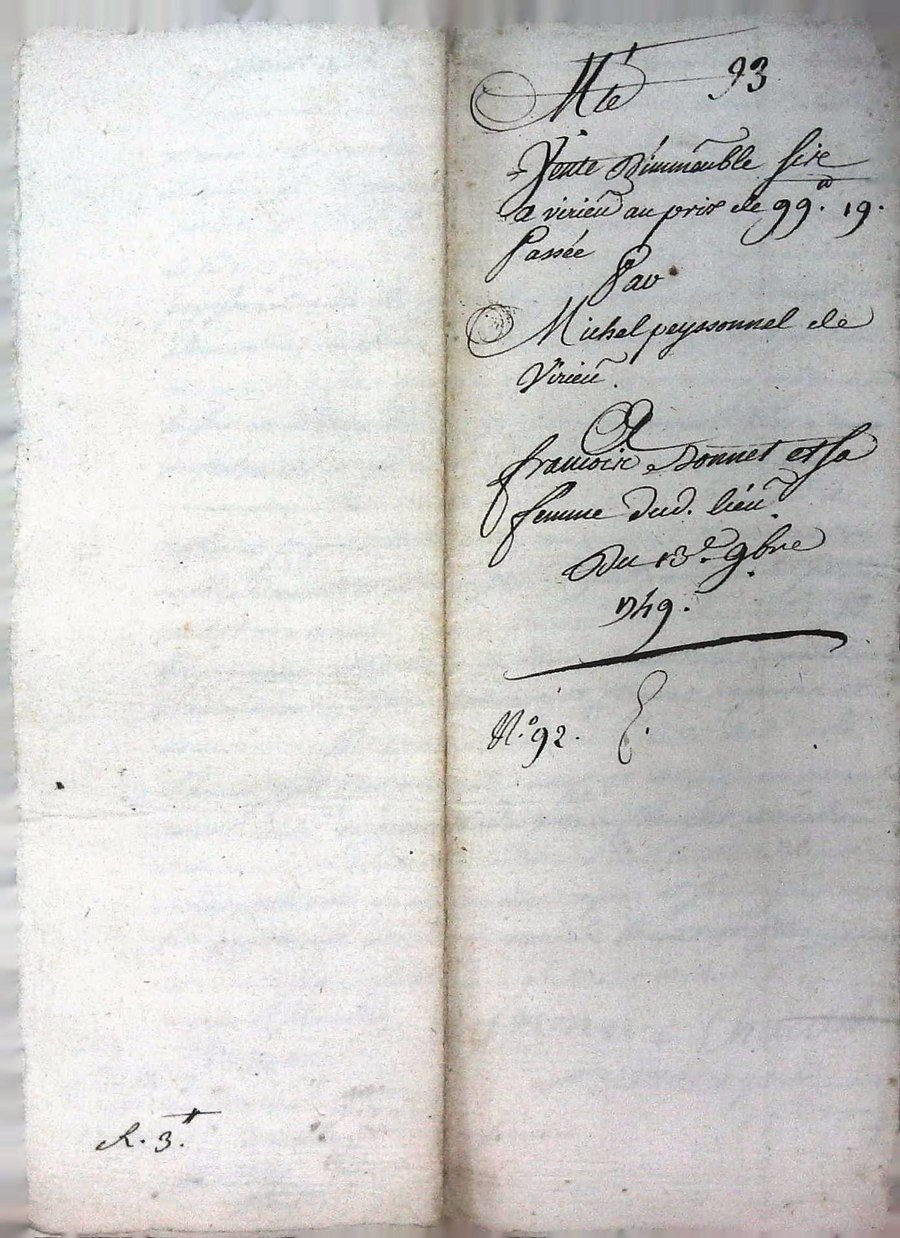 Mte 93
Vente d'immeuble size
a virieu au prix de 99.# 19.
Passée
Par
Michel peyssonnel de
Virieu.
A
francois Donnet et sa
femme dud. lieu.
Du 13.e 9bre
1749.
N.o 92. E.
R. 3.#